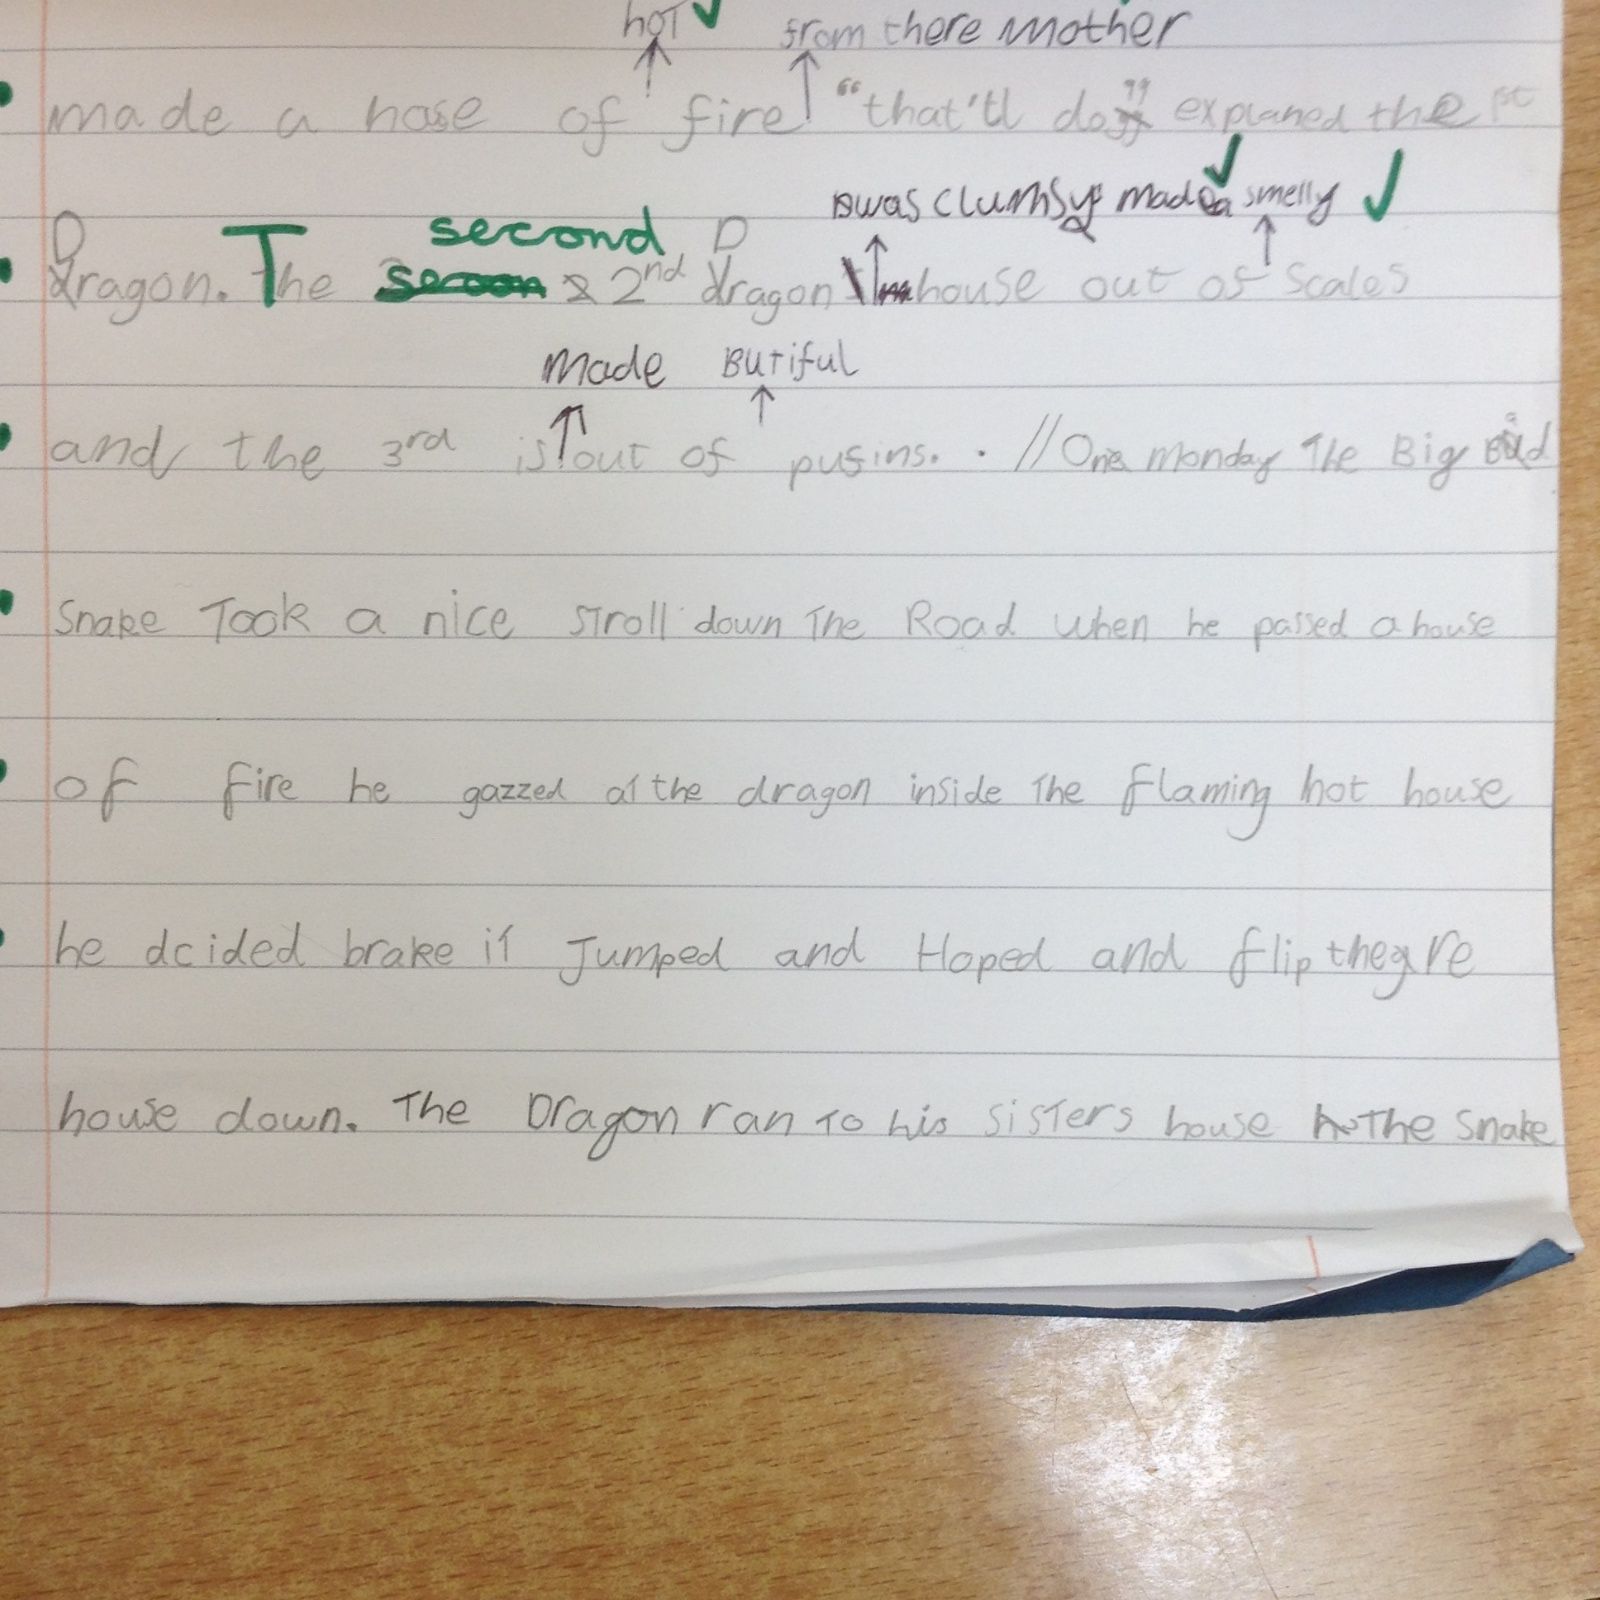 hot from there mother
made a hose of fire "that'll do" explaned the 1st
was clumsy made a smelly
second D
D
dragon. The 2nd dragon house out of scales
made Butiful
and the 3rd is out of pusins. . // One monday The Big Bad
Snake Took a nice stroll down The Road when he passed a house
of fire he gazzed at the dragon inside The flaming hot house
he dcided brake it Jumped and Hoped and flip theyre
house down. The Dragon ran To his sisters house The snake